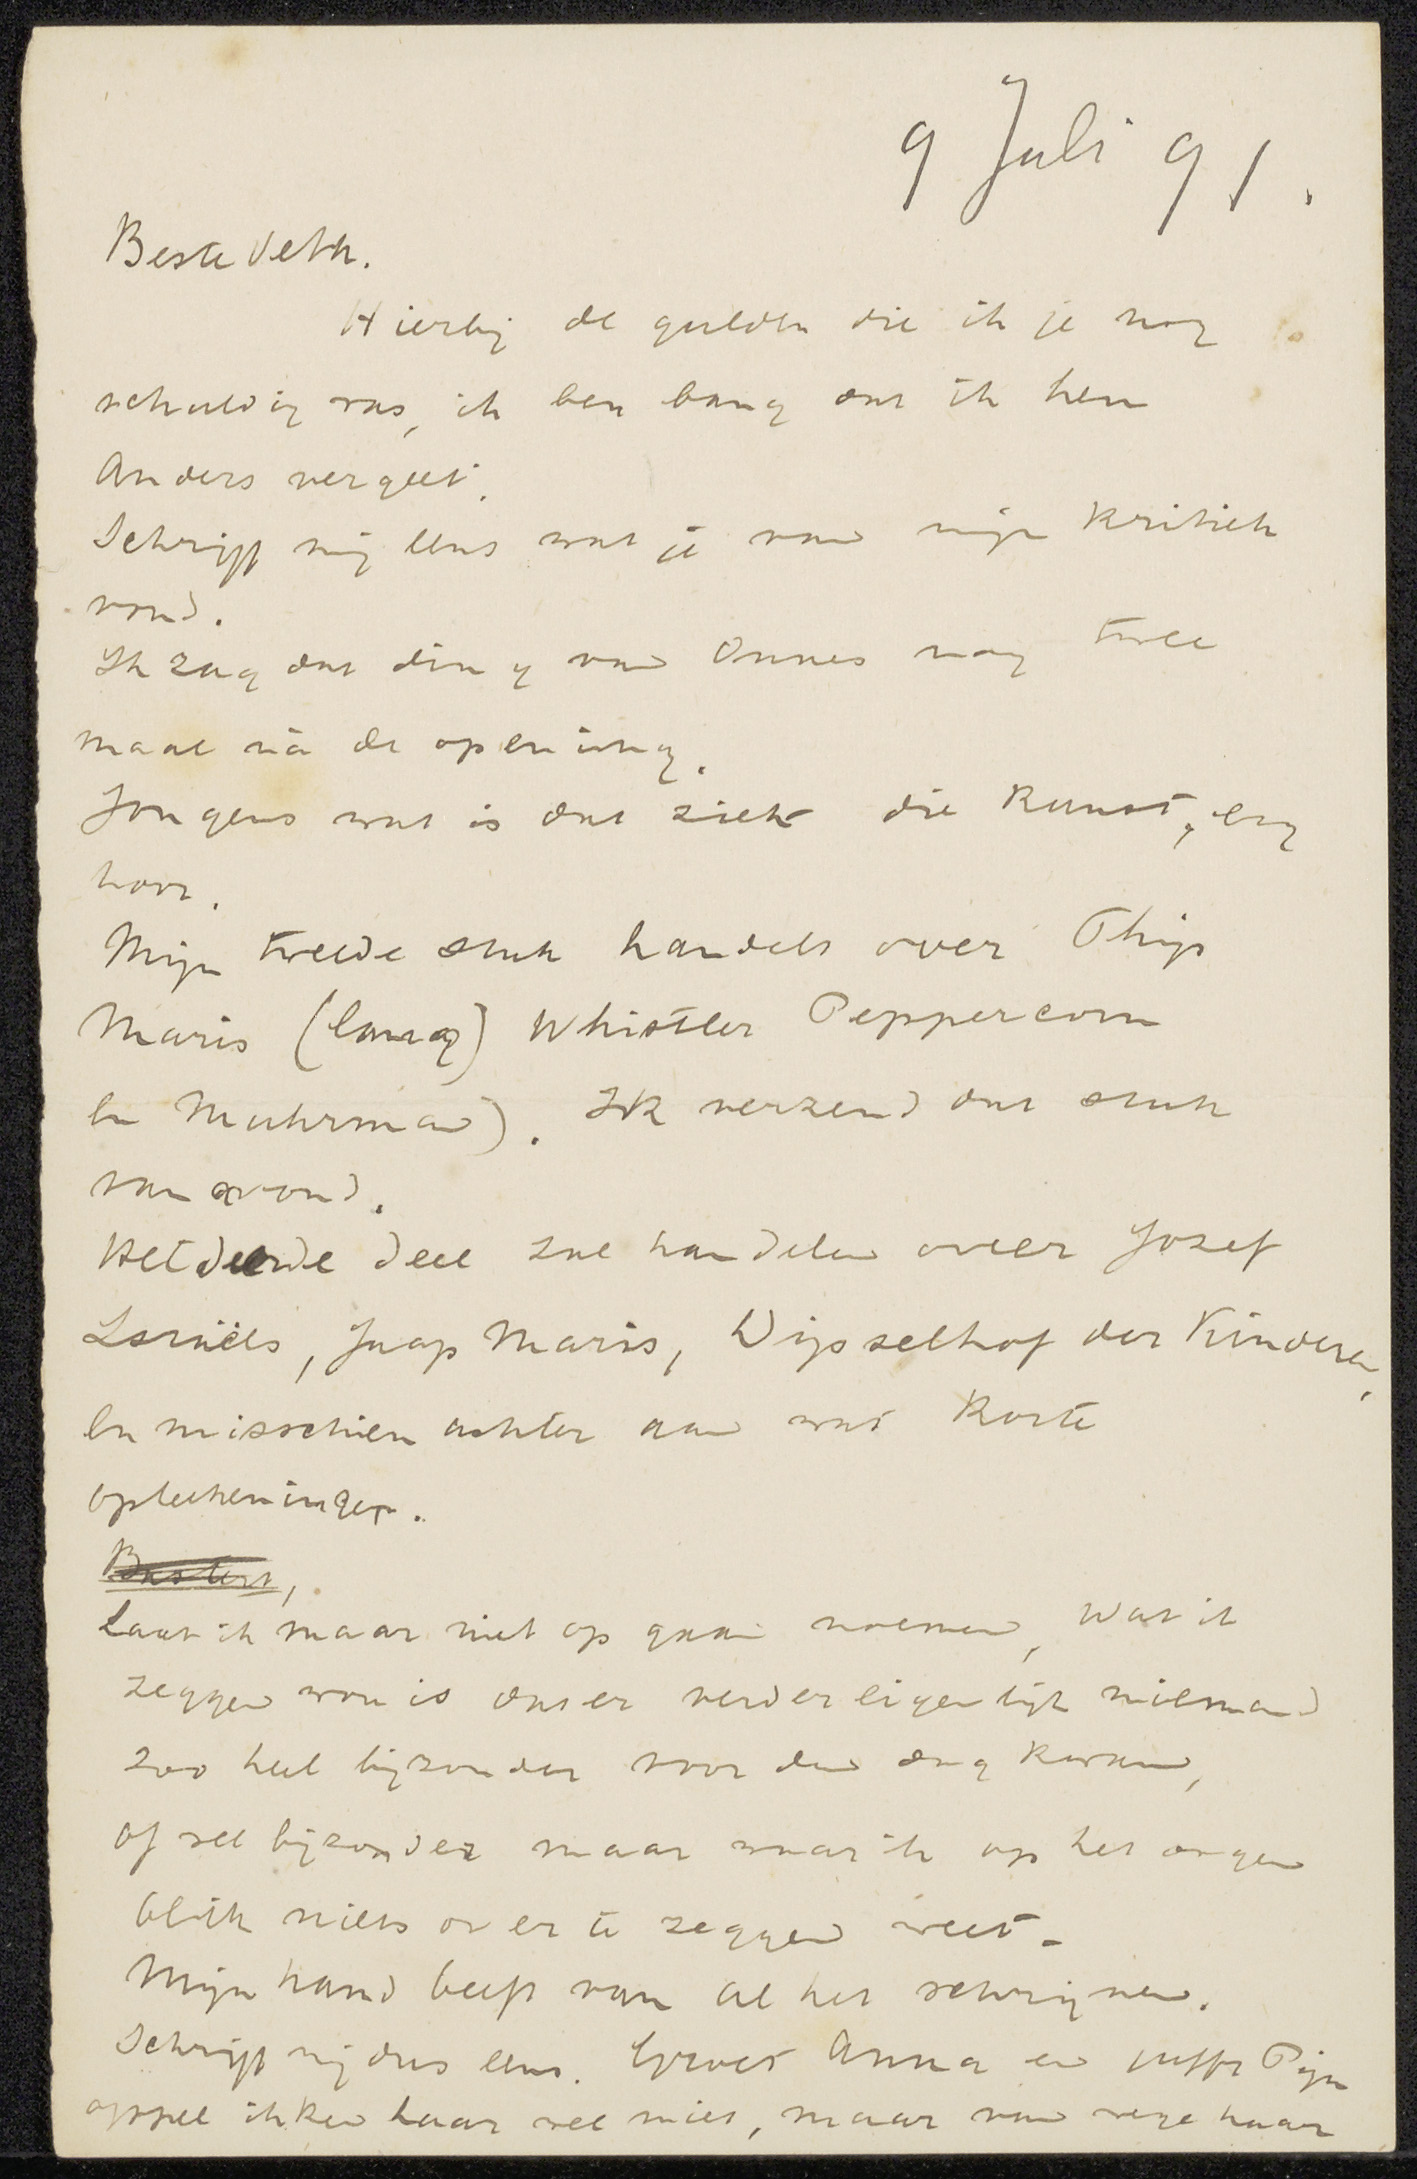 9 Juli 91.
Beste Veth.
Hierbij de gulden die ik je nog
schuldig was, ik ben bang dat ik hem
anders vergeet.
Schrijf mij eens wat je van mijn kritiek
vond.
Ik zag dat ding van Onnes nog twee
maal ná de opening.
Jongens wat is dat ziek die kunst, erg
hoor.
Mijn tweede stuk handelt over Thijs
Maris (lang) Whistler Peppercorn
en Muhrman). Ik verzend dat stuk
van avond.
Het derde deel zal handelen over Jozef
Israëls, Jaap Maris, Dijsselhof der Kinderen,
en misschien achter aan wat korte
opteekeningen.
Bastert,
Laat ik maar niet op gaan noemen, wat ik
zeggen wou is dat er verder eigenlijk niemand
zoo heel bijzonder voor den dag kwam,
of wel bijzonder maar waar ik op het oogen
blik niets over te zeggen weet.
Mijn hand beeft van al het schrijven.
Schrijf mij dus eens. Groet Anna en juffr Pijn
appel ik ken haar wel niet, maar van wege haar